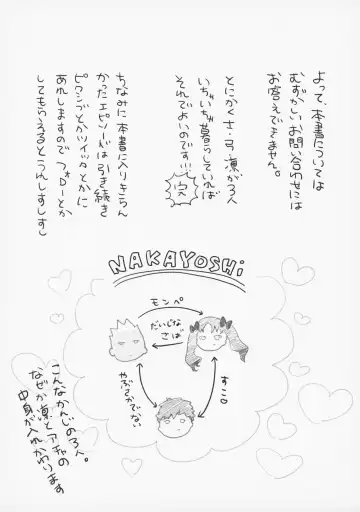 よって、本書については
むずかしいお問い合わせには
お答えできません。
とにかくさ・弓・凛が3人
いちゃいちゃ暮らしていれば
それでよいのです!!!
(完)
ちなみに本書に入りきらん
かったエピソードは引き続き
ピクシブとかツイッタとかに
あれしますので フォローとか
してもらえるとうれしすしすし
NAKAYOSHi
モンペ
だいじな
さば
やぶさかでない
すこ
こんなかんじの3人。
なぜか凛とアチャの
中身が入れかわります